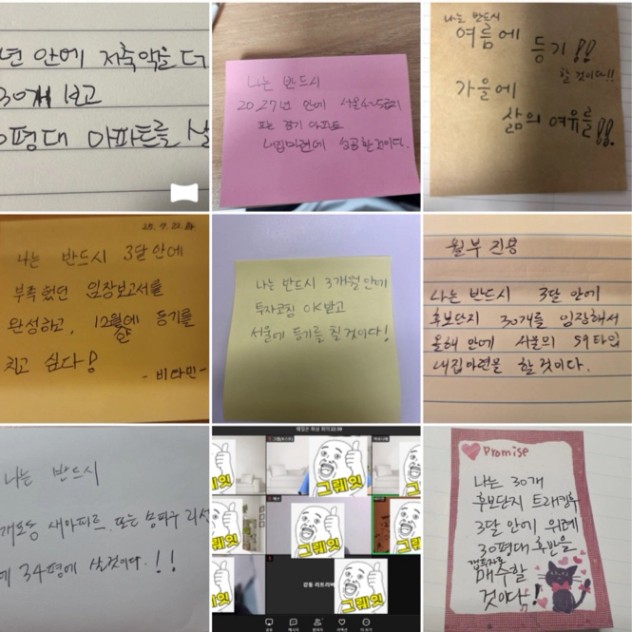 년 안에 저축액을 더
30개 보고
평대 아파트를 살
나는 반드시
2027년 안에 서울4~5급지
또는 경기 아파트
내집마련에 성공할것이다.
나는 반드시
여름에
등기!!
할 것이다!!
가을에
삶의 여유를!!
나는 반드시 3달 안에
부족했던 임장보고서를
완성하고, 12월에 등기를
치고 싶다!
- 비타민 -
나는 반드시 3개월 안에
투자코칭 OK받고
서울에 등기를 칠 것이다!
월부 진용
나는 반드시 3달 안에
후보단지 30개를 임장해서
올해 안에 서울의 59타입
내집마련을 할 것이다.
나는 반드시
개포동 새아파트 또는 송파구
34평에 살것이다.!!
그뤠잇
그뤠잇
그뤠잇
그뤠잇
그뤠잇
Promise
나는 30개
후보단지 트래킹후
3달 안에 위례
30평대 후반을
매수할
것이다!